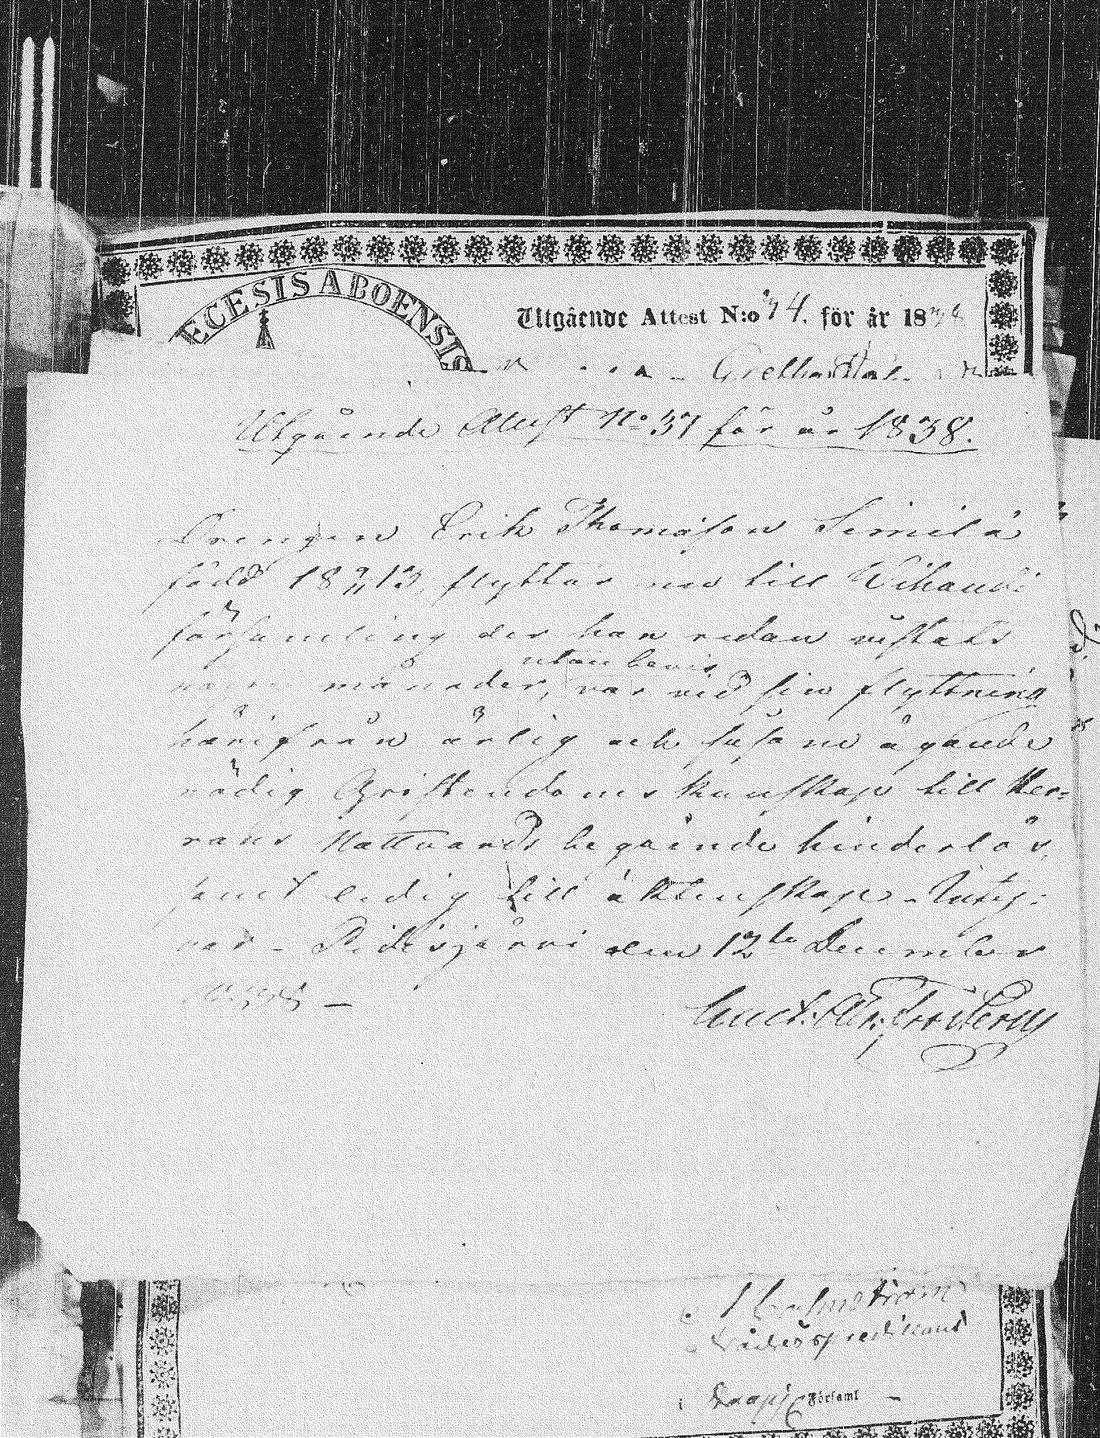 ECESIS ABOENSIS
Utgående Attest N:o 74. för år 1838
Gretha
Utgående Attest No 37 för år 1838.
Drengen Erik Thomasson Simila
född 18 9/11 13, flyttar nu till Wihandi
församling der han redan vistats
utan bevis
månader, var vid sin flyttning
härifrån ärlig och ägande
nödig Christendoms kunskap till Her=
rans Nattvards begående hinderlös,
samt ledig till äktenskap. Intyg=
var - Pidisjärvi den 12te December
1838 -
Holmström
Nådårspredikant
Församl